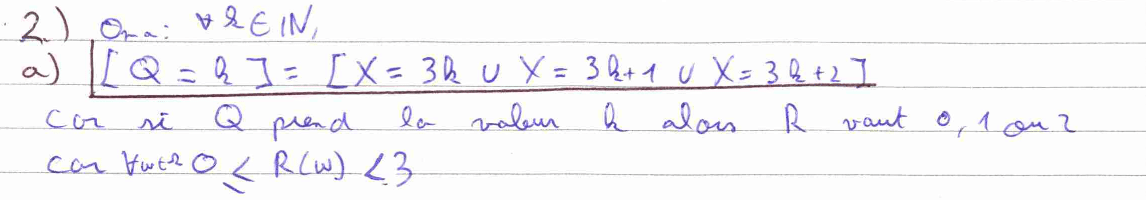 2.) On a: ∀ k ∈ ℕ,
a) [Q = k] = [X = 3k ∪ X = 3k+1 ∪ X = 3k+2]
car si Q prend la valeur k alors R vaut 0, 1 ou 2
car ∀ω∈Ω 0 ≤ R(ω) < 3